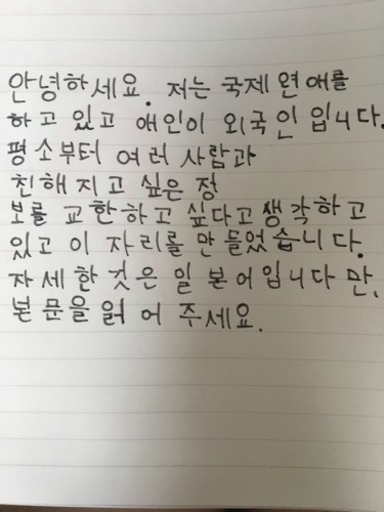 안녕하세요. 저는 국제 연애를
하고 있고 애인이 외국인 입니다.
평소부터 여러 사람과
친해 지고 싶은 정
보를 교한하고 싶다고 생각하고
있고 이 자리를 만들었습니다.
자세한 것은 일본어입니다 만,
본문을 읽어 주세요.